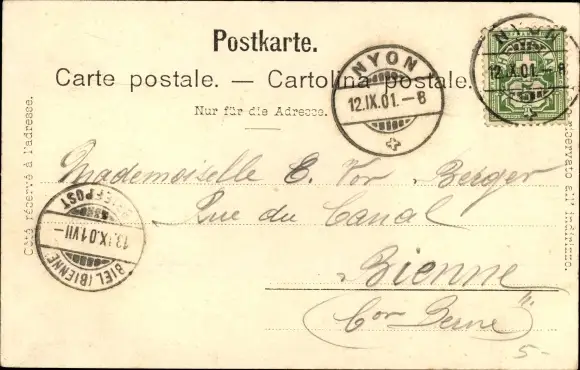 Postkarte.
Carte postale. — Cartolina postale.
Nur für die Adresse.
Côté réservé à l'adresse.
riservato all' indirizzo.
NYON
12.IX.01.–8
NYON
12.IX.01. 8
BIEL (BIENNE)
BRIEFPOST
13.IX.01 VII–
Mademoiselle E. Vor Berger
Rue du Canal
Bienne
(Con Berne)
5-